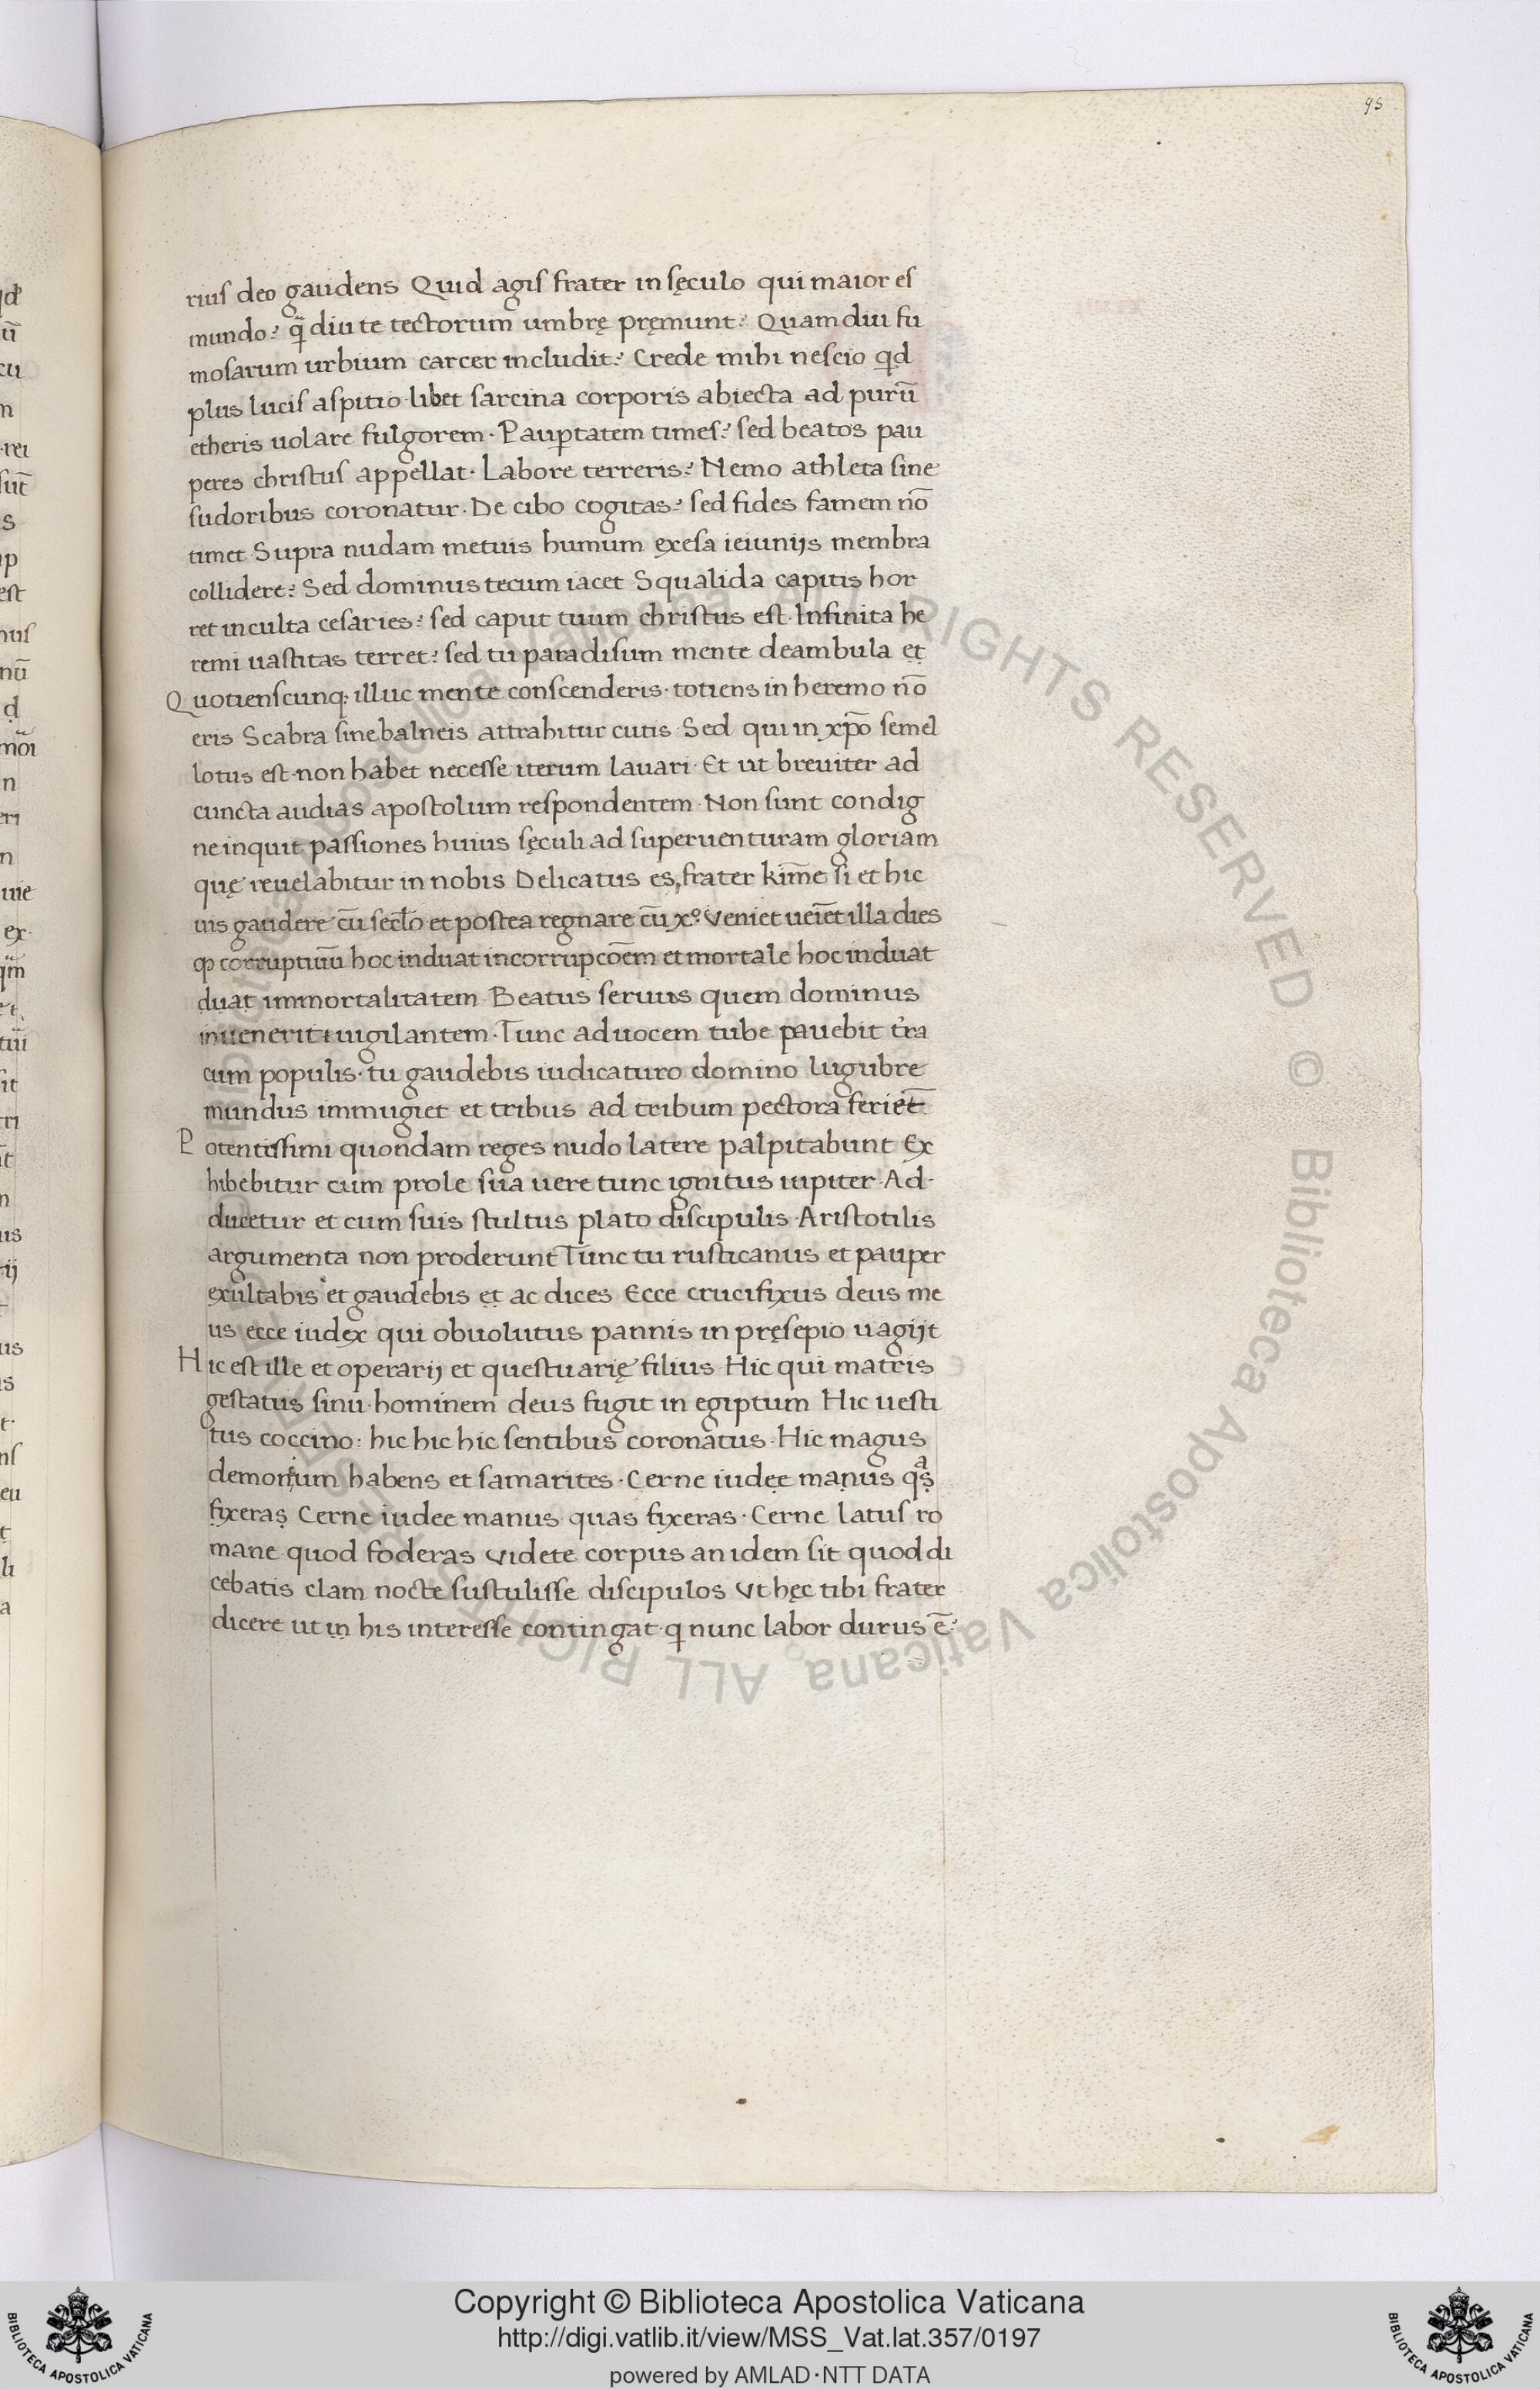 95
rius deo gaudens Quid agis frater in sęculo qui maior es
mundo? q̃ diu te tectorum umbrę pręmunt? Quam diu fu
mosarum urbium carcer includit? Crede mihi nescio qd
plus lucis aspitio libet sarcina corporis abiecta ad purū
etheris uolare fulgorem · Paup̱tatem times? sed beatos pau
peres christus appellat · Labore terreris? Nemo athleta sine
sudoribus coronatur · De cibo cogitas? sed fides famem nō
timet · Supra nudam metuis humum exesa ieiunijs membra
collidere? Sed dominus tecum iacet Squalida capitis hor
ret inculta cesaries? sed caput tuum christus est · Infinita he
remi uastitas terret? sed tu paradisum mente deambula et
Quotienscunq; illuc mente conscenderis · totiens in heremo nō
eris Scabra sine balneis attrahitur cutis · Sed qui in xp̄o semel
lotus est · non habet necesse iterum lauari · Et ut breuiter ad
cuncta audias apostolum respondentem · Non sunt condig
ne inquit passiones huius sęculi ad superuenturam gloriam
quę reuelabitur in nobis Delicatus es, frater kīme si et hic
uis gaudere cū secl̄o et postea regnare cū xº Veniet ueīet illa dies
qꝫ corruptiuū hoc induat incorrupcōem et mortale hoc induat
duat immortalitatem · Beatus seruus quem dominus
inuenerit uigilantem · Tunc ad uocem tube pauebit t̄ra
cum populis · tu gaudebis iudicaturo domino lugubre
mundus immugiet et tribus ad tribum pectora feriet
Potentissimi quondam reges nudo latere palpitabunt Ex
hibebitur cum prole sua uere tunc ignitus iupiter · Ad·
ducetur et cum suis stultus plato discipulis · Aristotilis
argumenta non proderunt Tunc tu rusticanus et pauper
exultabis et gaudebis et ac dices Ecce crucifixus deus me
us ecce iudex qui obuolutus pannis in pręsepio uagijt
Hic est ille et operarij et questuarię filius · Hic qui matris
gestatus sinu · hominem deus fugit in egiptum Hic uesti
tus coccino: hic hic hic sentibus coronatus · Hic magus
demonium habens et samarites · Cerne iudee manus qᵃs
fixeras Cerne iudee manus quas fixeras · Cerne latus ro
mane quod foderas Videte corpus an idem sit quod di
cebatis clam nocte sustulisse discipulos Vt hęc tibi frater
dicere ut in his interesse contingat · q nunc labor durus ē?
© Biblioteca Apostolica Vaticana ALL RIGHTS RESERVED
Copyright © Biblioteca Apostolica Vaticana
http://digi.vatlib.it/view/MSS_Vat.lat.357/0197
powered by AMLAD·NTT DATA
BIBLIOTECA APOSTOLICA VATICANA
BIBLIOTECA APOSTOLICA VATICANA